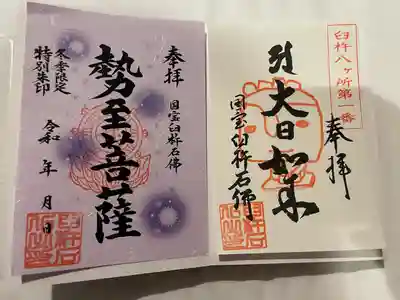 臼杵八ヶ所第一番
奉拝
大日如来
国宝臼杵石佛
奉拝
国宝臼杵石佛
勢至菩薩
冬季限定
特別朱印
令和 年 月 日